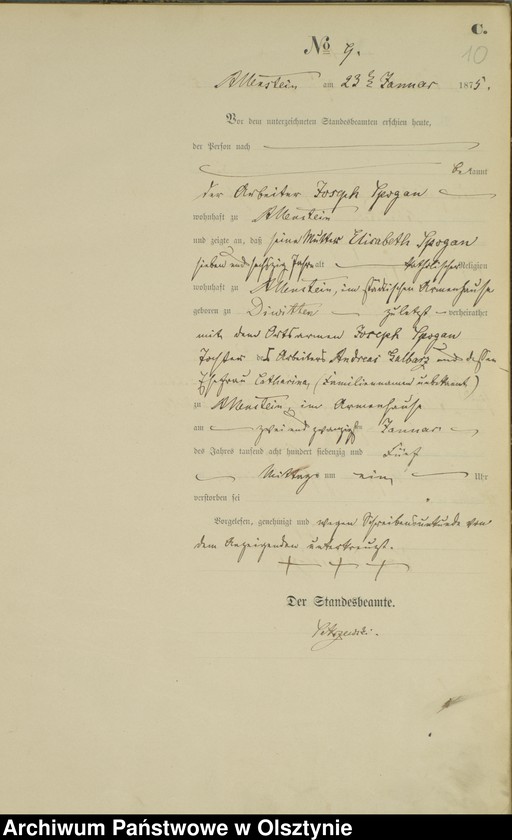 C.
10
No 9.
Allenstein am 23 Januar 1875.
Vor dem unterzeichneten Standesbeamten erschien heute,
der Person nach
bekannt
der Arbeiter Joseph Spogan
wohnhaft zu Allenstein
und zeigte an, daß seine Mutter Elisabeth Spogan
sieben und sechzig Jahre alt katholischer Religion
wohnhaft zu Allenstein, im städtischen Armenhause
geboren zu Diwitten zuletzt verheirathet
mit dem Ortsarmen Joseph Spogan
Tochter des Arbeiters Andreas und dessen
Ehefrau Catharina, (Familiennamen unbekannt)
zu Allenstein, im Armenhause
am zwei und zwanzigsten Januar
des Jahres tausend acht hundert siebenzig und Fünf
Mittags um ein Uhr
verstorben sei
Vorgelesen, genehmigt und wegen Schreibensunkunde von
dem Anzeigenden unterkreuzt.
+ + +
Der Standesbeamte.
Archiwum Państwowe w Olsztynie